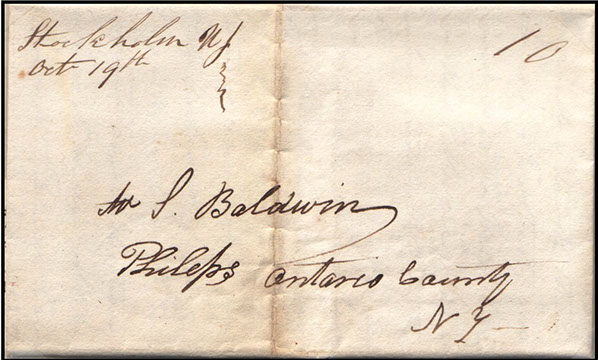 Stockholm NJ
Oct 19th
10
Mr S. Baldwin
Phileps Ontario County
NY